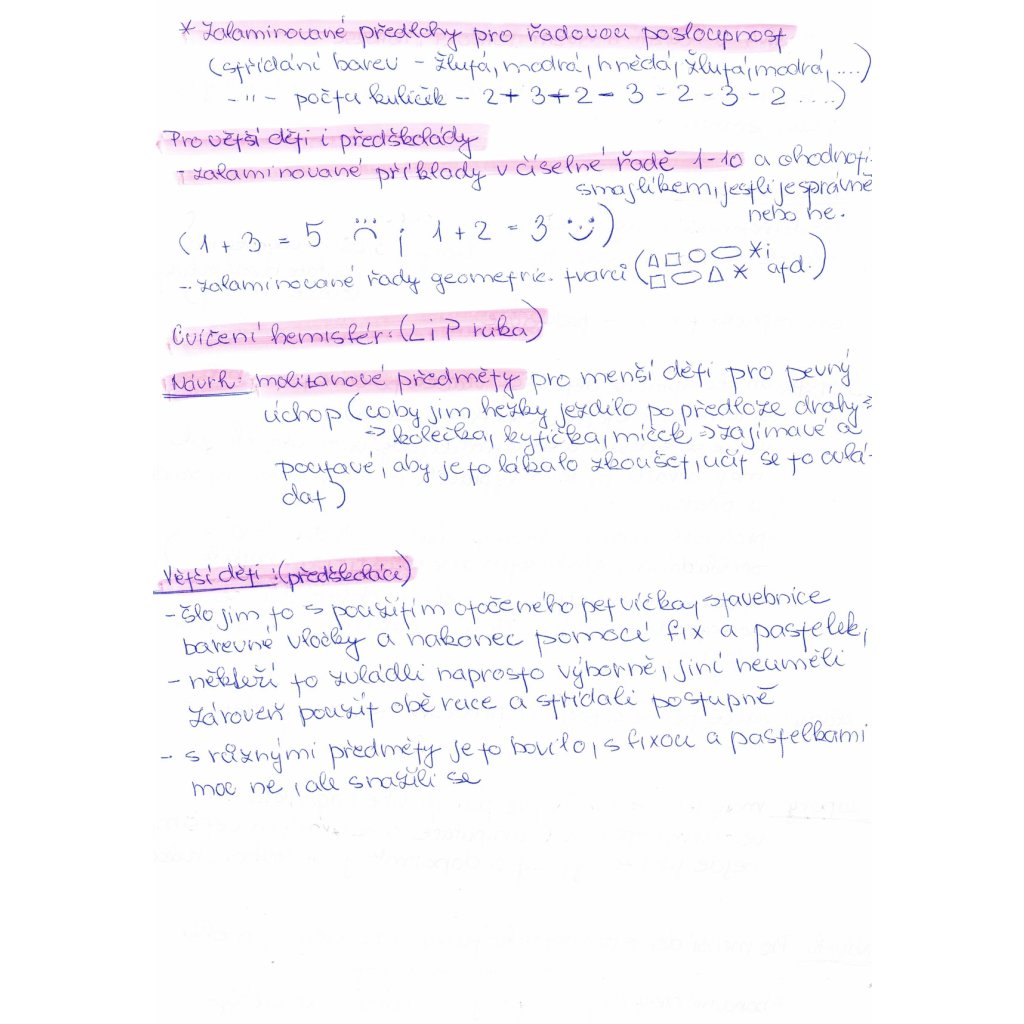 * Zalaminované předlohy pro řadovou posloupnost
(střídání barev - žlutá, modrá, hnědá, žlutá, modrá, ....)
- " - počtu kuliček - 2 + 3 + 2 - 3 - 2 - 3 - 2 ....)
Pro větší děti i předškoláky
- zalaminované příklady v číselné řadě 1-10 a ohodnotí
smajlíkem, jestli je správně
nebo ne.
(1 + 3 = 5 ☹ ; 1 + 2 = 3 ☺)
- zalaminované řady geometric. tvarů (△□○⬭*;
□⬭△* atd.)
Cvičení hemisfér. (L i P ruka)
Návrh: molitanové předměty pro menší děti pro pevný
úchop (coby jim hezky jezdilo po předloze dráhy ⇒
⇒ kolečka, kytička, míček ⇒ zajímavé a
poutavé, aby je to lákalo zkoušet, učit se to ovlá-
dat)
Větší děti: (předškoláci)
- šlo jim to s použitím otočeného pet víčka, stavebnice
barevné vločky a nakonec pomocí fix a pastelek,
- někteří to zvládli naprosto výborně, jiní neuměli
zároveň použít obě ruce a střídali postupně
- s různými předměty je to bavilo, s fixou a pastelkami
moc ne, ale snažili se